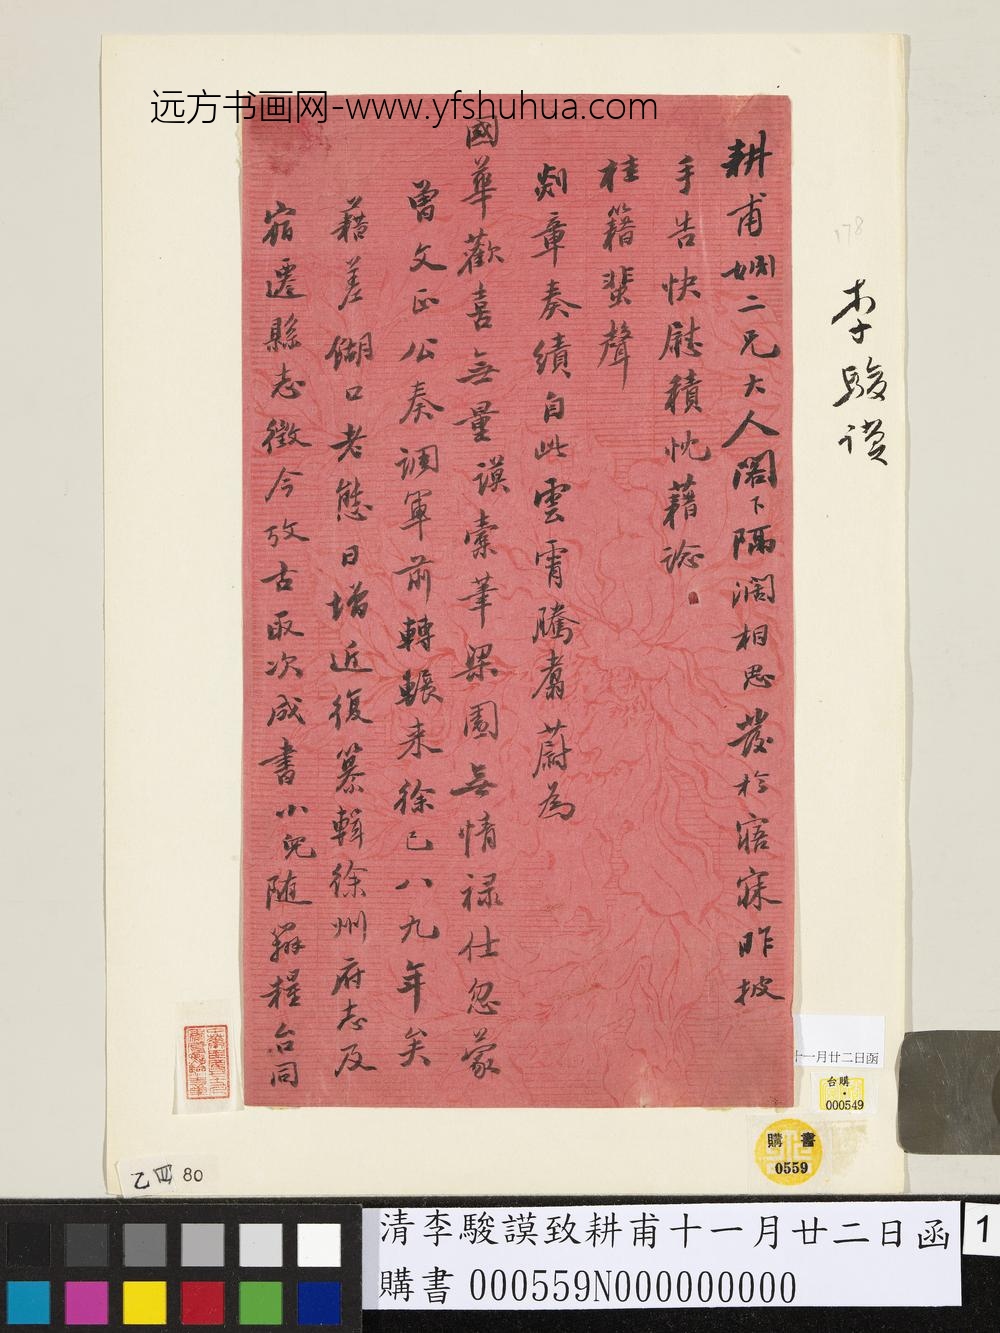 远方书画网-www.yfshuhua.com
耕甫姻二兄大人閣下隔濶相思發於寤寐昨披
手告快慰積忱藉諗
桂籍蜚聲
剡章奏績自此雲霄騰翥蔚為
國華歡喜無量謨橐筆梁園無情祿仕忽蒙
曾文正公奏調軍前轉輾来徐已八九年矣
藉差餬口老態日增近復纂輯徐州府志及
宿遷縣志徵今攷古取次成書小兒随辦糧台同
李駿謨
178
十一月廿二日函
購
台
000549
購書
0559
乙四 80
清李駿謨致耕甫十一月廿二日函
購書 000559N000000000
1